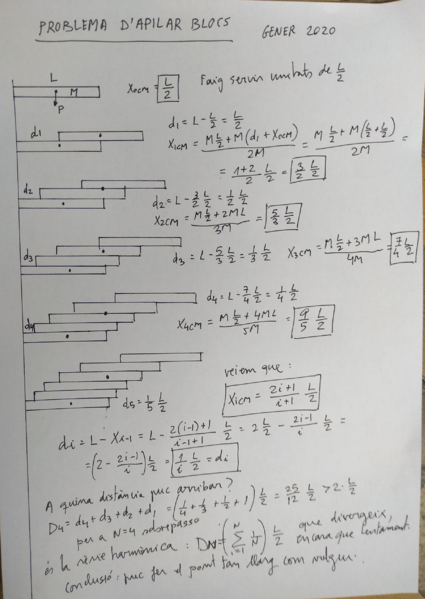 PROBLEMA D'APILAR BLOCS GENER 2020
L
M
P
X0CM = L/2 Faig servir unitats de L/2
d1
d1 = L - L/2 = L/2
X1CM = (M L/2 + M(d1 + X0CM))/2M = (M L/2 + M(L/2 + L/2))/2M =
= (1+2)/2 L/2 = 3/2 L/2
d2
d2 = L - 3/2 L/2 = 1/2 L/2
X2CM = (M L/2 + 2ML)/3M = 5/3 L/2
d3
d3 = L - 5/3 L/2 = 1/3 L/2 X3CM = (M L/2 + 3ML)/4M = 7/4 L/2
d4
d4 = L - 7/4 L/2 = 1/4 L/2
X4CM = (M L/2 + 4ML)/5M = 9/5 L/2
d5 = 1/5 L/2
veiem que:
XiCM = (2i+1)/(i+1) L/2
di = L - Xi-1 = L - (2(i-1)+1)/(i-1+1) L/2 = 2 L/2 - (2i-1)/i L/2 =
= (2 - (2i-1)/i) L/2 = 1/i L/2 = di
A quina distància puc arribar?
D4 = d4 + d3 + d2 + d1 = (1/4 + 1/3 + 1/2 + 1) L/2 = 25/12 L/2 > 2·L/2
per a N=4 sobrepasso
és la sèrie harmònica: DN = (Σ i=1 N 1/N) L/2 que divergeix,
encara que lentament.
Conclusió: puc fer el pont tan llarg com vulgui.